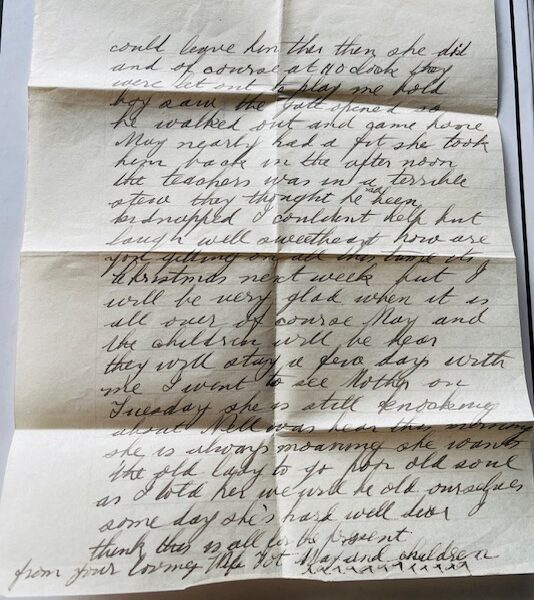 could leave him ther then she did
and of course at 11 oclock they
were let out to play me hold
boy saw the gatt opened so
he walked out and came home
May nearly had a fit she took
him back in the after noon
the teachers was in a terrible
stew they thought he had been
kidnapped I couldent help but
laugh well sweetheart how are
you getting on all this time its
Christmas next week but I
will be very glad when it is
all over of course May and
the children will be hear
they will stay a few days with
me I went to see Mother on
Tuesday she is still knocking
about Nell was hear this morning
she is always moaning she wants
the old lady to go poor old soul
as I told her we will be old ourselves
some day she's hard well dear
I think this is all to be present
from your loving Wife Dot May and children
xxxxxxxxxxxx